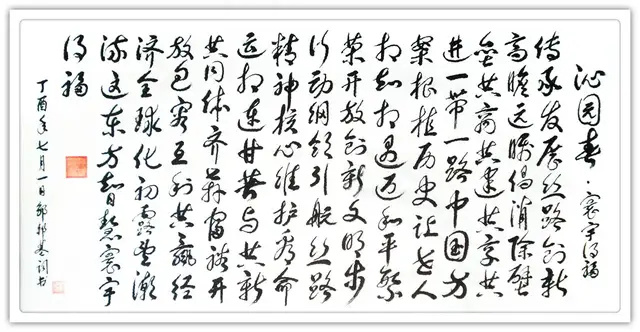 沁园春·寰宇得福
传承发展丝路创新
高瞻远瞩倡消除壁
垒共商共建共享共
进一带一路中国方
案根植历史让世人
相知相遇迈和平繁
荣开放创新文明步
行动纲领引航丝路
精神核心维护看命
运相连甘苦与共新
共同体齐奔富裕开
放包容互利共赢经
济全球化初露潮
流这东方智慧寰宇
得福
丁酉年七月一日邹邦基词书